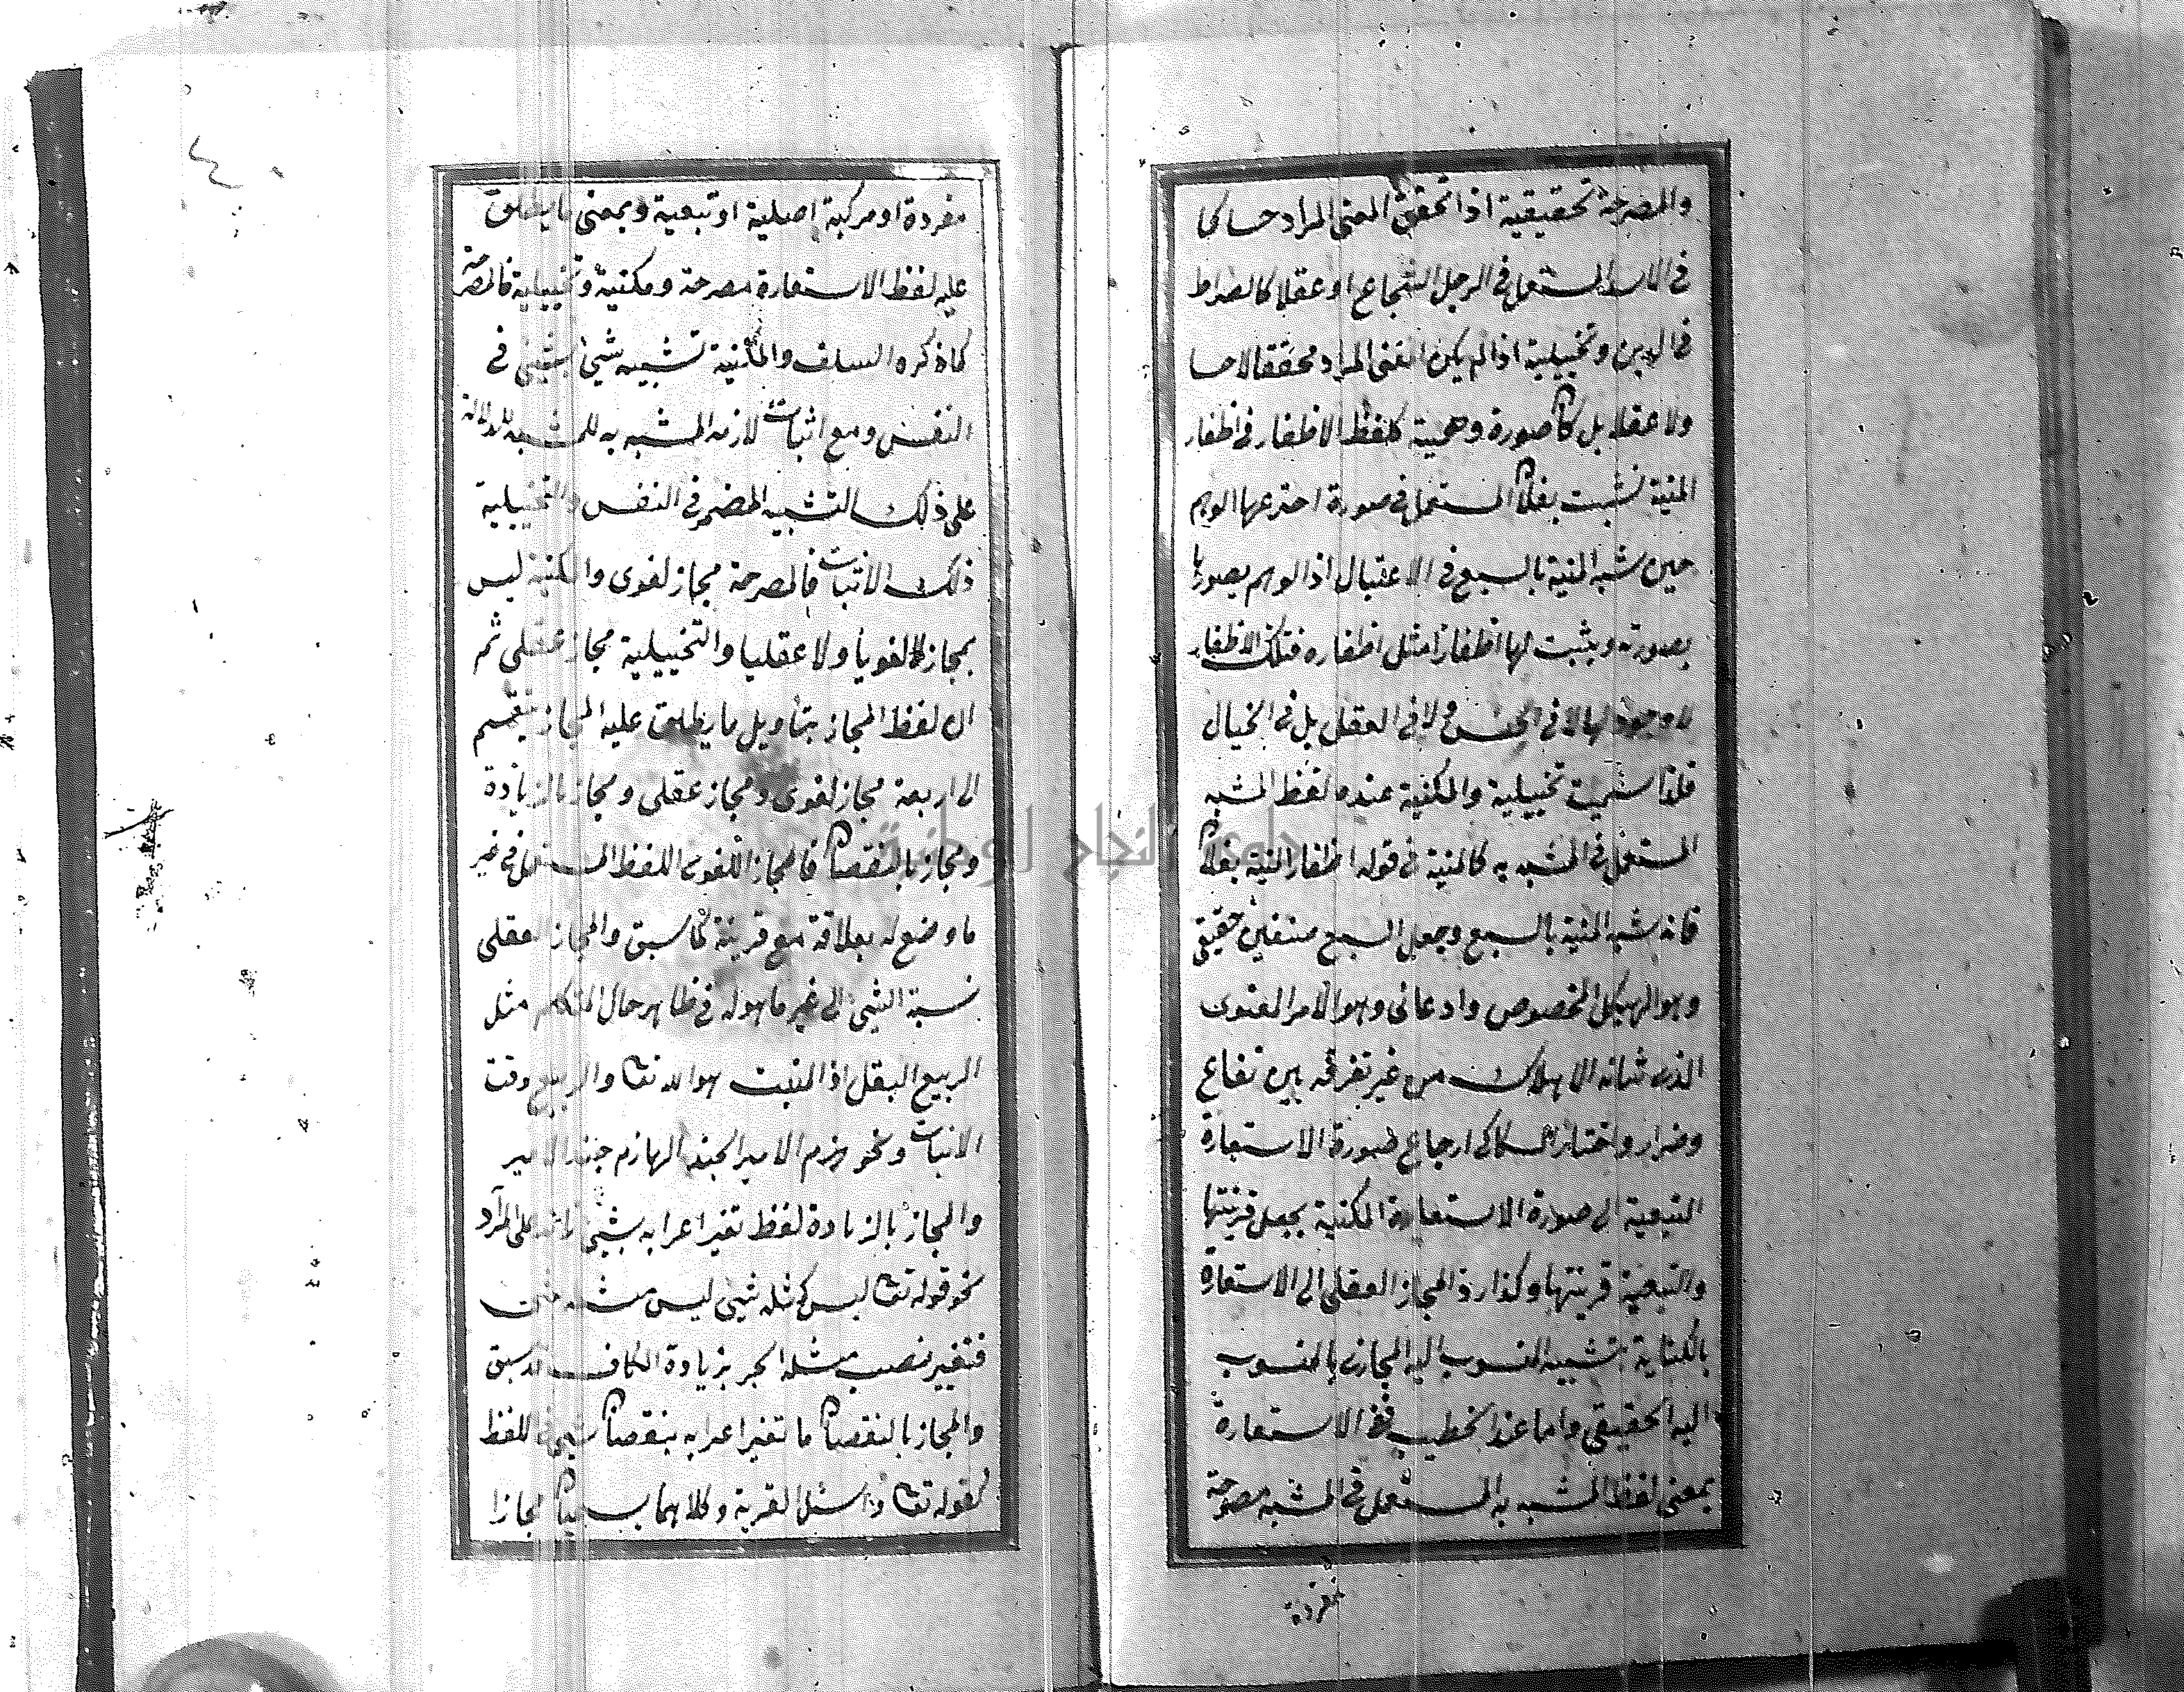 والمصرحة تحقيقية اذا تحقق المعنى المراد حسا كما
في الاسد المستعمل في الرجل الشجاع او عقلا كالصراط
في الدين وتخييلية اذا لم يكن المعنى المراد محققا لا حسا
ولا عقلا بل كا صورة وهمية كلفظ الاظفار في اظفار
المنية نشبت بفلا المستعمل في صورة اخترعها الوهم
حين شبه المنية بالسبع في الاغتيال اذ الوهم يصورها
بصورته ويثبت لها اظفارا مثل اظفاره فتلك الاظفار
لا وجود لها لا في الحس ولا في العقل بل في الخيال
فلذا سميت تخييلية والمكنية عنده لفظ المشبه
المستعمل في المشبه به كالمنية في قوله اظفار المنية بفلا
فانه شبه المنية بالسبع وجعل السبع صنفين حقيقي
وهو الهيكل المخصوص وادعائى وهو الامر المعنوى
الذى شانه الاهلاك من غير تفرقة بين نفاع
وضرار واختار السكاكى ارجاع صورة الاستعارة
التبعية الى صورة الاستعارة المكنية بجعل قرينتها
والتبعية قرينتها وكذا رد المجاز العقلى الى الاستعارة
بالكناية بتشبيه المنسوب اليه المجازى بالمنسوب
اليه الحقيقي واما عند الخطيب ففى الاستعارة
بمعنى لفظ المشبه به المستعمل في المشبه مصرحة
مفردة
٤
مفردة او مركبة اصلية او تبعية وبمعنى ما يطلق
عليه لفظ الاستعارة مصرحة ومكنية وتخييلية فالمصرحة
كما ذكره السلف والمكنية تشبيه شيئ بشيئ في
النفس ومع اثبات لازمه المشبه به للمشبه للدلالة
على ذلك التشبيه المضمر في النفس والتخييلية
ذلك الاثبات فالمصرحة مجاز لغوى والمكنية ليس
بمجاز لا لغويا ولا عقليا والتخييلية مجاز عقلى ثم
ان لفظ المجاز بتأويل ما يطلق عليه المجاز ينقسم
الى اربعة مجاز لغوى ومجاز عقلى ومجاز بالزيادة
ومجاز بالنقصا فالمجاز اللغوى اللفظ المستعمل في غير
ما وضع له بعلاقة مع قرينة كما سبق والمجاز العقلى
نسبة الشيئ الى غير ما هو له في ظاهر حال المتكلم مثل
الربيع البقل اذ المنبت هو الله تعا والربيع وقت
الانبات ونحو هزم الامير الجند الهازم جند الامير
والمجاز بالزيادة لفظ تغير اعرابه بشيئ زائد على المراد
نحو قوله تعا ليس كمثله شيئ ليس مثله شيئ
فتغير نصب مثله الى الجر بزيادة الكاف قد سبق
والمجاز بالنقصا ما تغير اعرابه بنقصا شيئ في اللفظ
كقوله تعا واسئل القرية وكلاهما مجازا
جامعة النجاح الوطنية